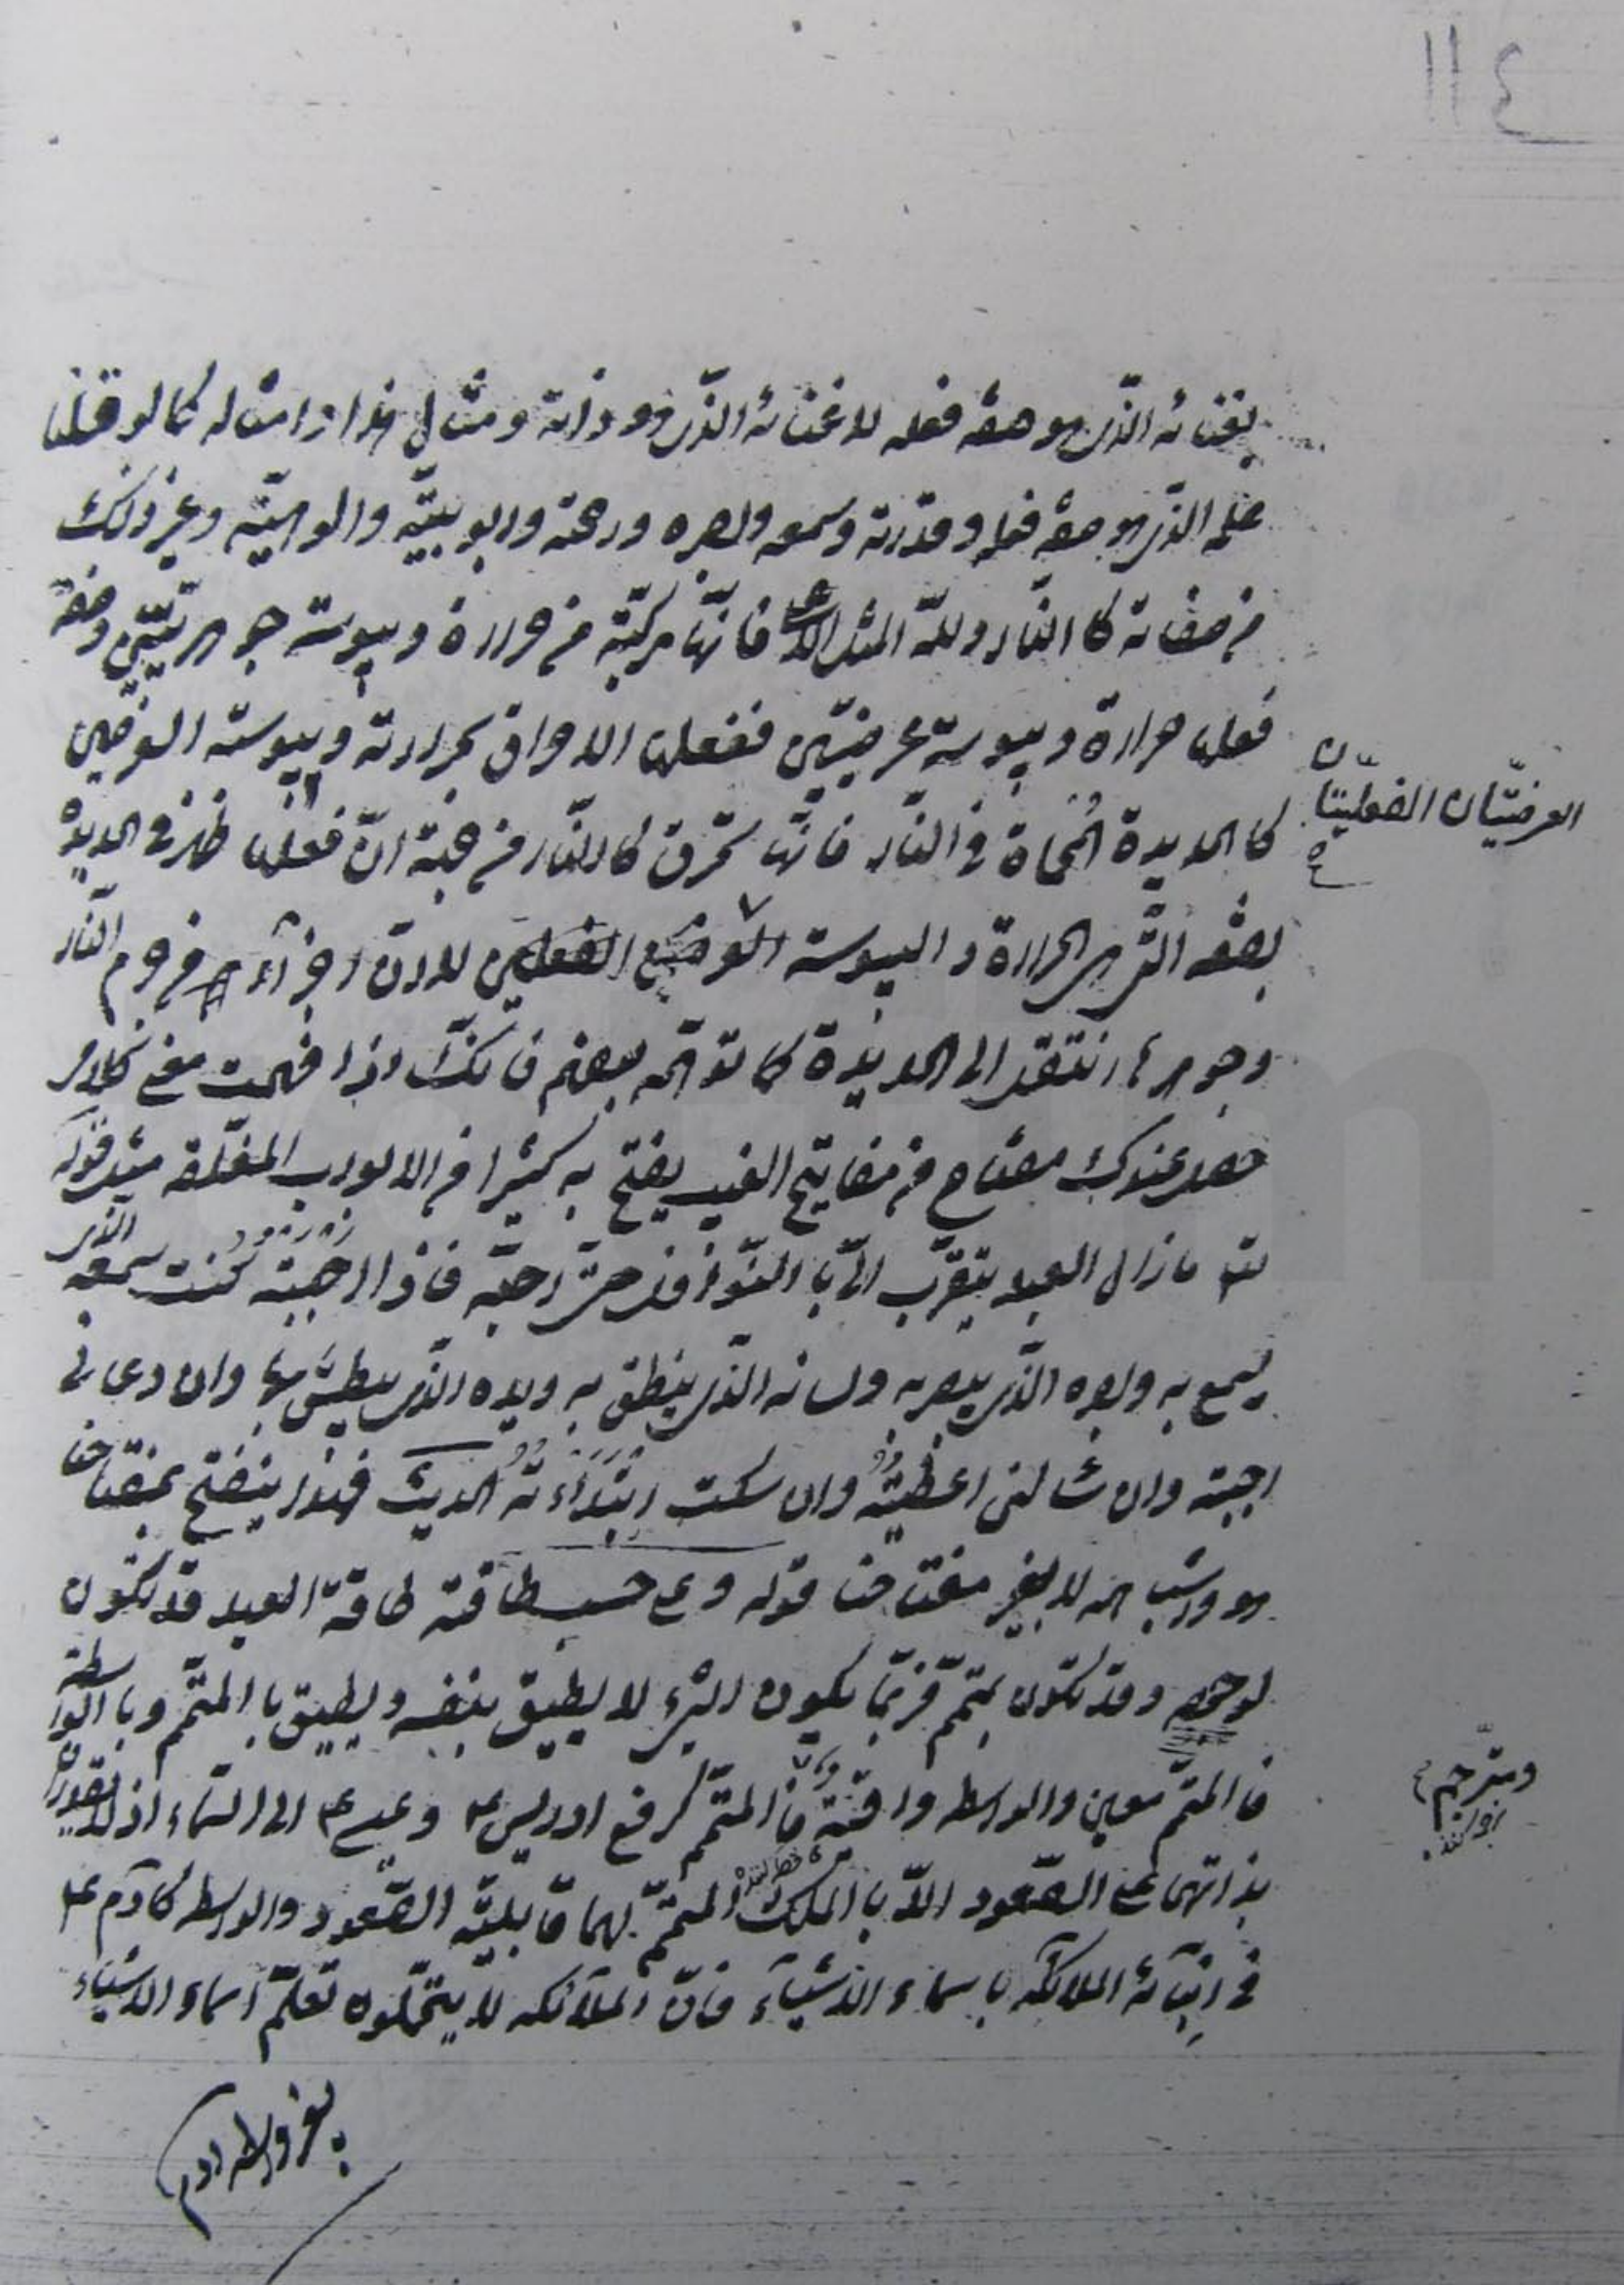 ١١٤
بغنائه الذي هو صفة فعله لا غنائه الذي هو ذاته ومثال هذا وامثاله كما لو قلنا
علمه الذي هو صفة فعله وقدرته وسمعه وبصره ورحمته وربوبيّته والوهيّته وغير ذلك
من صفاته كا النّار وللّه المثل الاعلى فانّها مركّبة من حرارة ويبوسة جوهريّتين وصفة
فعلها حرارة ويبوسة عرضيّتين ففعلها الاحراق بحرارته ويبوسته العرضيين
العرضيّتان الفعليّتان
كا الحديدة المُحماة في النّار فانّها تحرق كالنّار من جهة انّ فعلها ظهر في الحديدة
بصفته الّتي هي الحرارة و اليبوسة العرضيين الفعليين لا انّ اجزآء من جرم النّار
وجوهرها انتقلت الى الحديدة كما توهّمه بعضهم فانّك اذا فهمت معنى كلامي
حصل عندك مفتاح من مفاتيح الغيب يفتح به كثيرا من الابواب المغلقة مثل قوله
تع ما زال العبد يتقرّب اليّ با النّوافل حتّى احبّه فاذا احببته كنت سمعه الذي
يسمع به وبصره الّذي يبصر به ولسانه الّذي ينطق به ويده الّتي يبطش بها وان دعاني
اجبته وان سئالني اعطيته وان سكت ابتدأته الحديث فهذا ينفتح بمفتاحنا
هو واشباهه لا بغير مفتاحنا قوله وعلى حسب طاقته طاقة العبد قد تكون
لوحده وقد تكون بمتمّم فربّما يكون الشيء لا يطيق بنفسه ويطيق با المتمّم وبا الواسطة
فا المتمّم معين والواسطه فا المتمّم كرفع ادريس ع وعيسى ع الى السّماء اذ لا يقدران
ومترجم
بذاتهما على الصّعود الاّ با الملك المتمّم لهما قابليّة الصّعود والواسطه كآدم ع
في انبآئه الملائكه باسماء الاشيآء فانّ الملآئكه لا يتحمّلون تعلّم اسماء الاشياء
بغير واسطه ادم